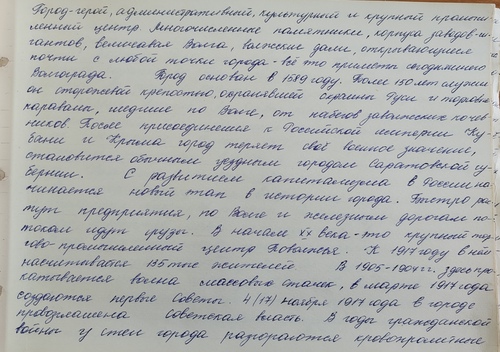 Город-герой, административный, культурный и крупной промыш-
ленный центр. Многочисленные памятники, корпуса заводов-ги-
гантов, величавая Волга, волжские дали, открывающиеся
почти с любой точки города - всё это приметы сегодняшнего
Волгограда. Город основан в 1589 году. Более 150 лет служил
он сторожевой крепостью, охранявшей окраины Руси и торговые
караваны, шедшие по Волге, от набегов заволжских кочев-
ников. После присоединения к Российской империи Ку-
бани и Крыма город теряет своё военное значение,
становится обычным уездным городом Саратовской гу-
бернии. С развитием капитализма в России на-
чинается новый этап в истории города. Быстро рас-
тут предприятия, по Волге и железным дорогам по-
током идут грузы. В начале XX века - это крупный тор-
гово-промышленный центр Поволжья. К 1917 году в нём
насчитывается 135 тыс жителей. В 1905-1907 гг. здесь про-
катывается волна массовых стачек, в марте 1917 года
создаются первые Советы. 4 (17) ноября 1917 года в городе
провозглашена Советская власть. В годы гражданской
войны у стен города разгораются кровопролитные